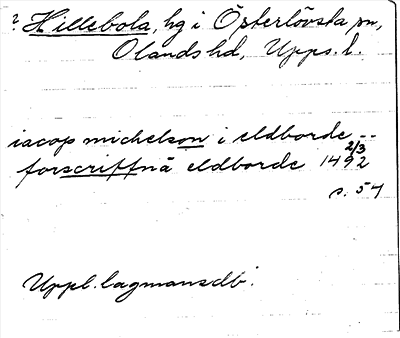 ? Hillebola, hg i Österlövsta sn,
Olands hd, Upps. l.
iacop michelson i eldborde --
forscriffnä eldborde 1492 2/3
s. 54
Uppl. lagmansdb.